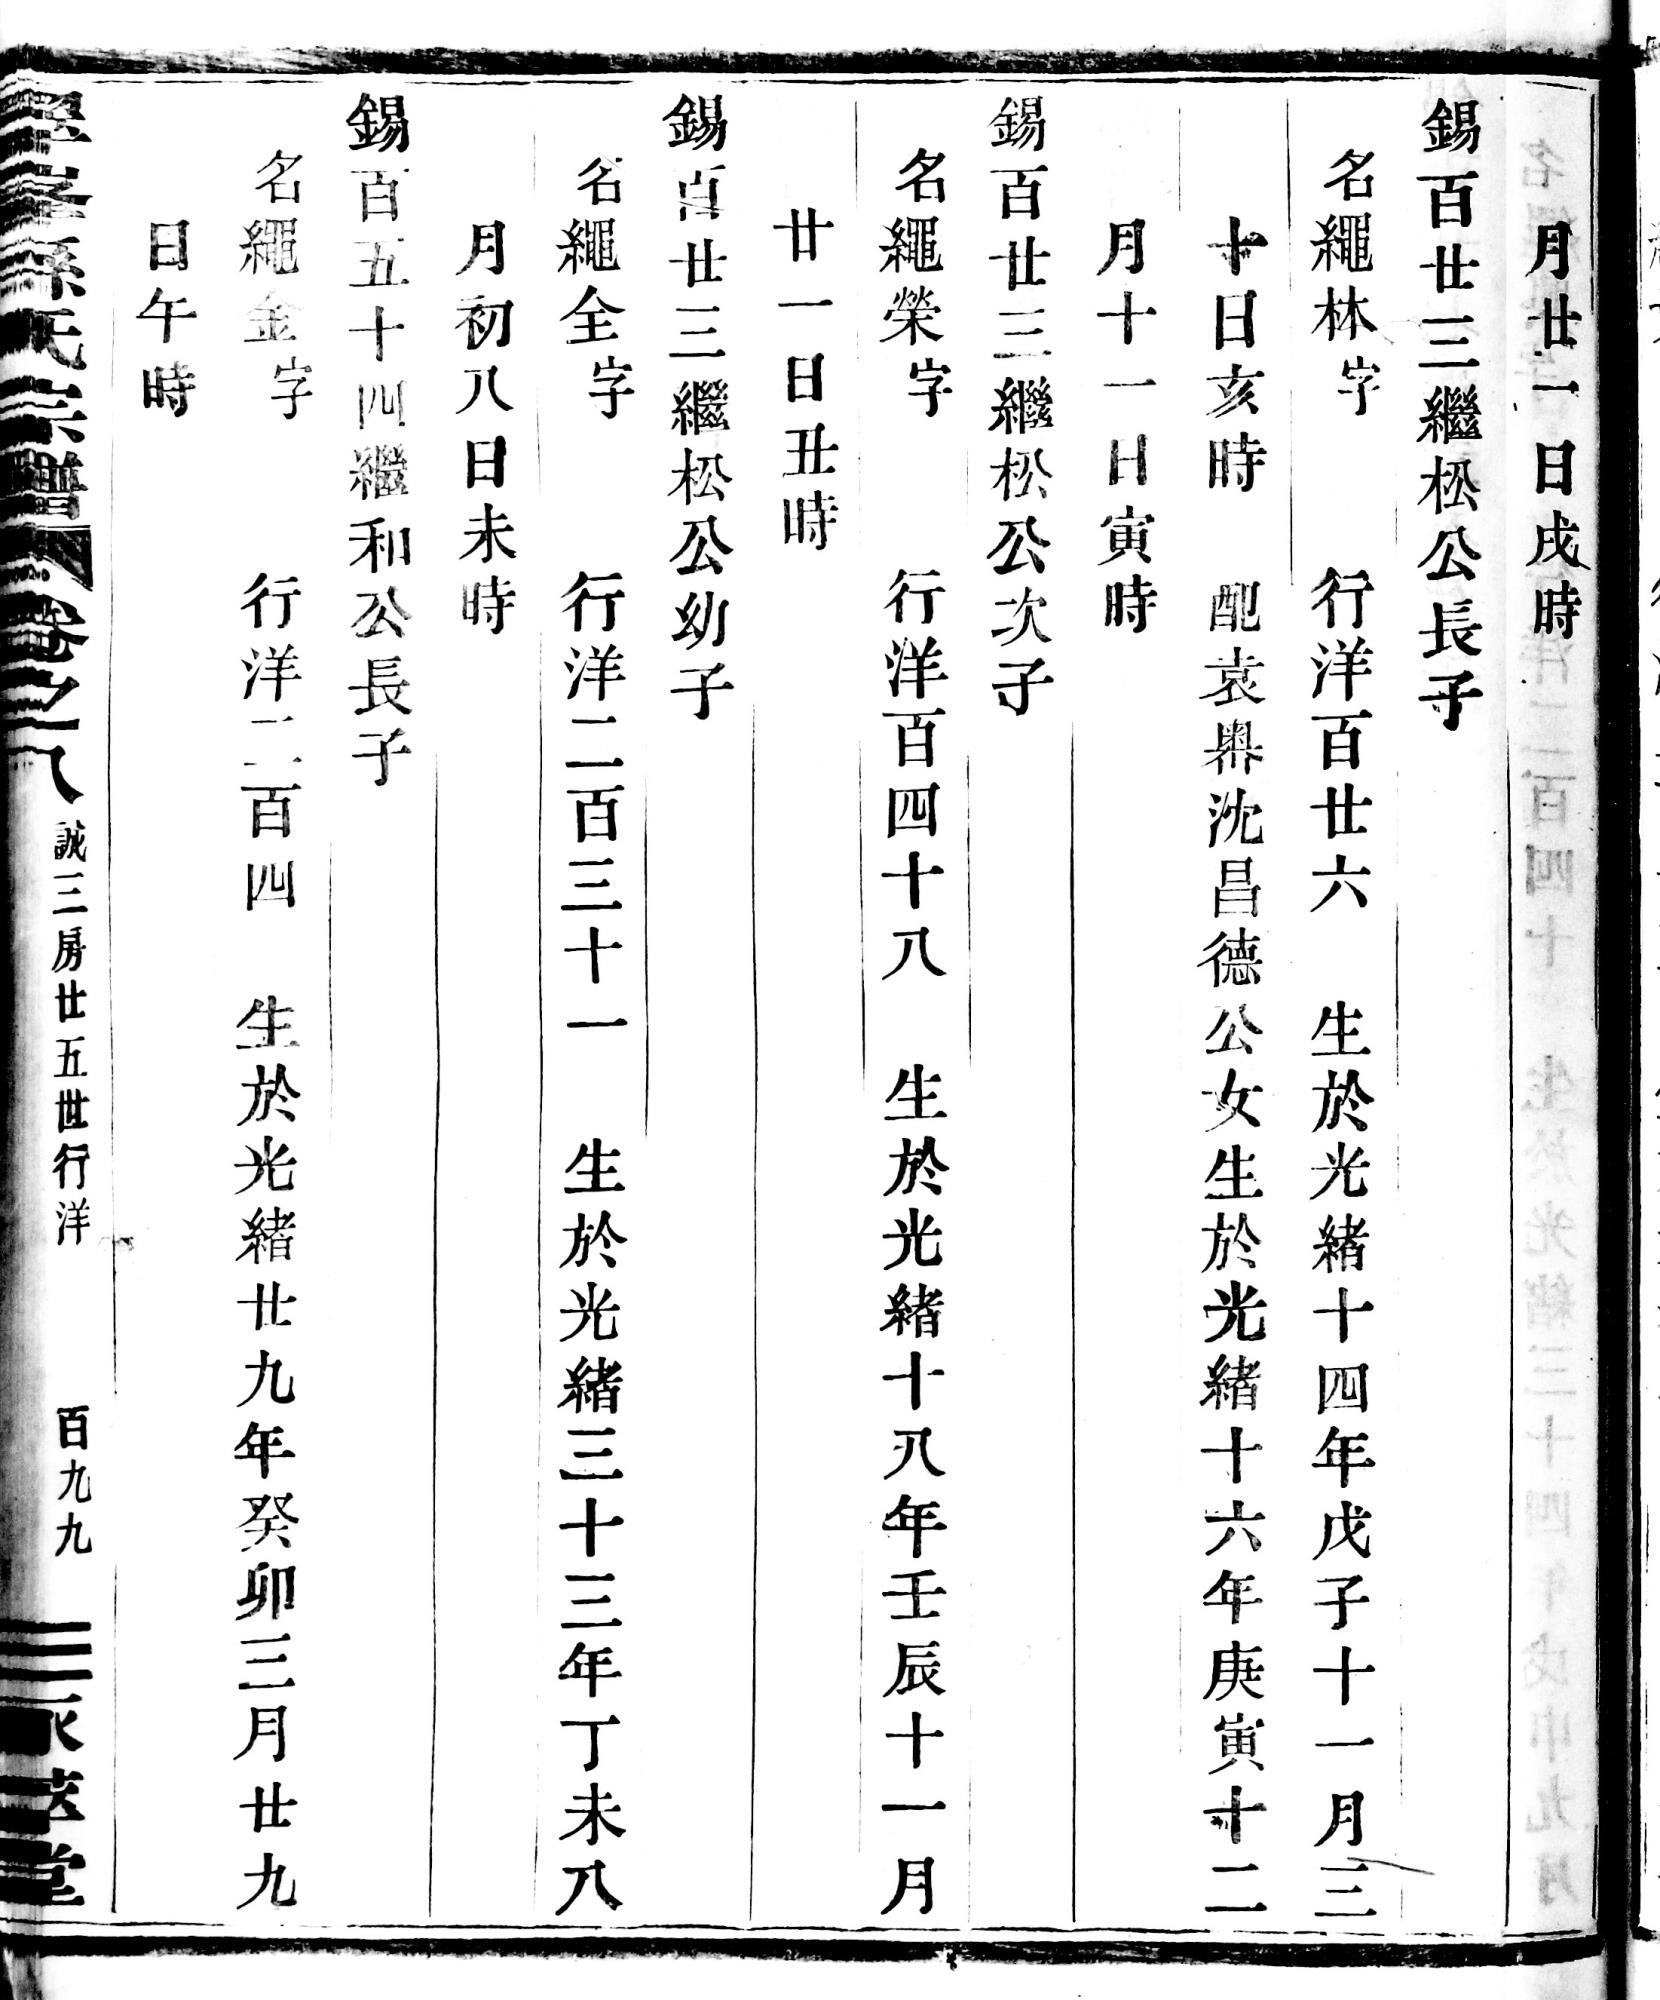 月廿一日戌時
錫百廿三繼松公長子
名繩林字　行洋百廿六　生於光緒十四年戊子十一月三
十日亥時　配袁㠗沈昌德公女生於光緒十六年庚寅十二
月十一日寅時
錫百廿三繼松公次子
名繩榮字　行洋百四十八　生於光緒十八年壬辰十一月
廿一日丑時
錫百廿三繼松公幼子
名繩全字　行洋二百三十一　生於光緒三十三年丁未八
月初八日未時
錫百五十四繼和公長子
名繩金字　行洋二百四　生於光緒廿九年癸卯三月廿九
日午時
孫氏宗譜　卷之八　誠三房廿五世行洋　百九九　堂